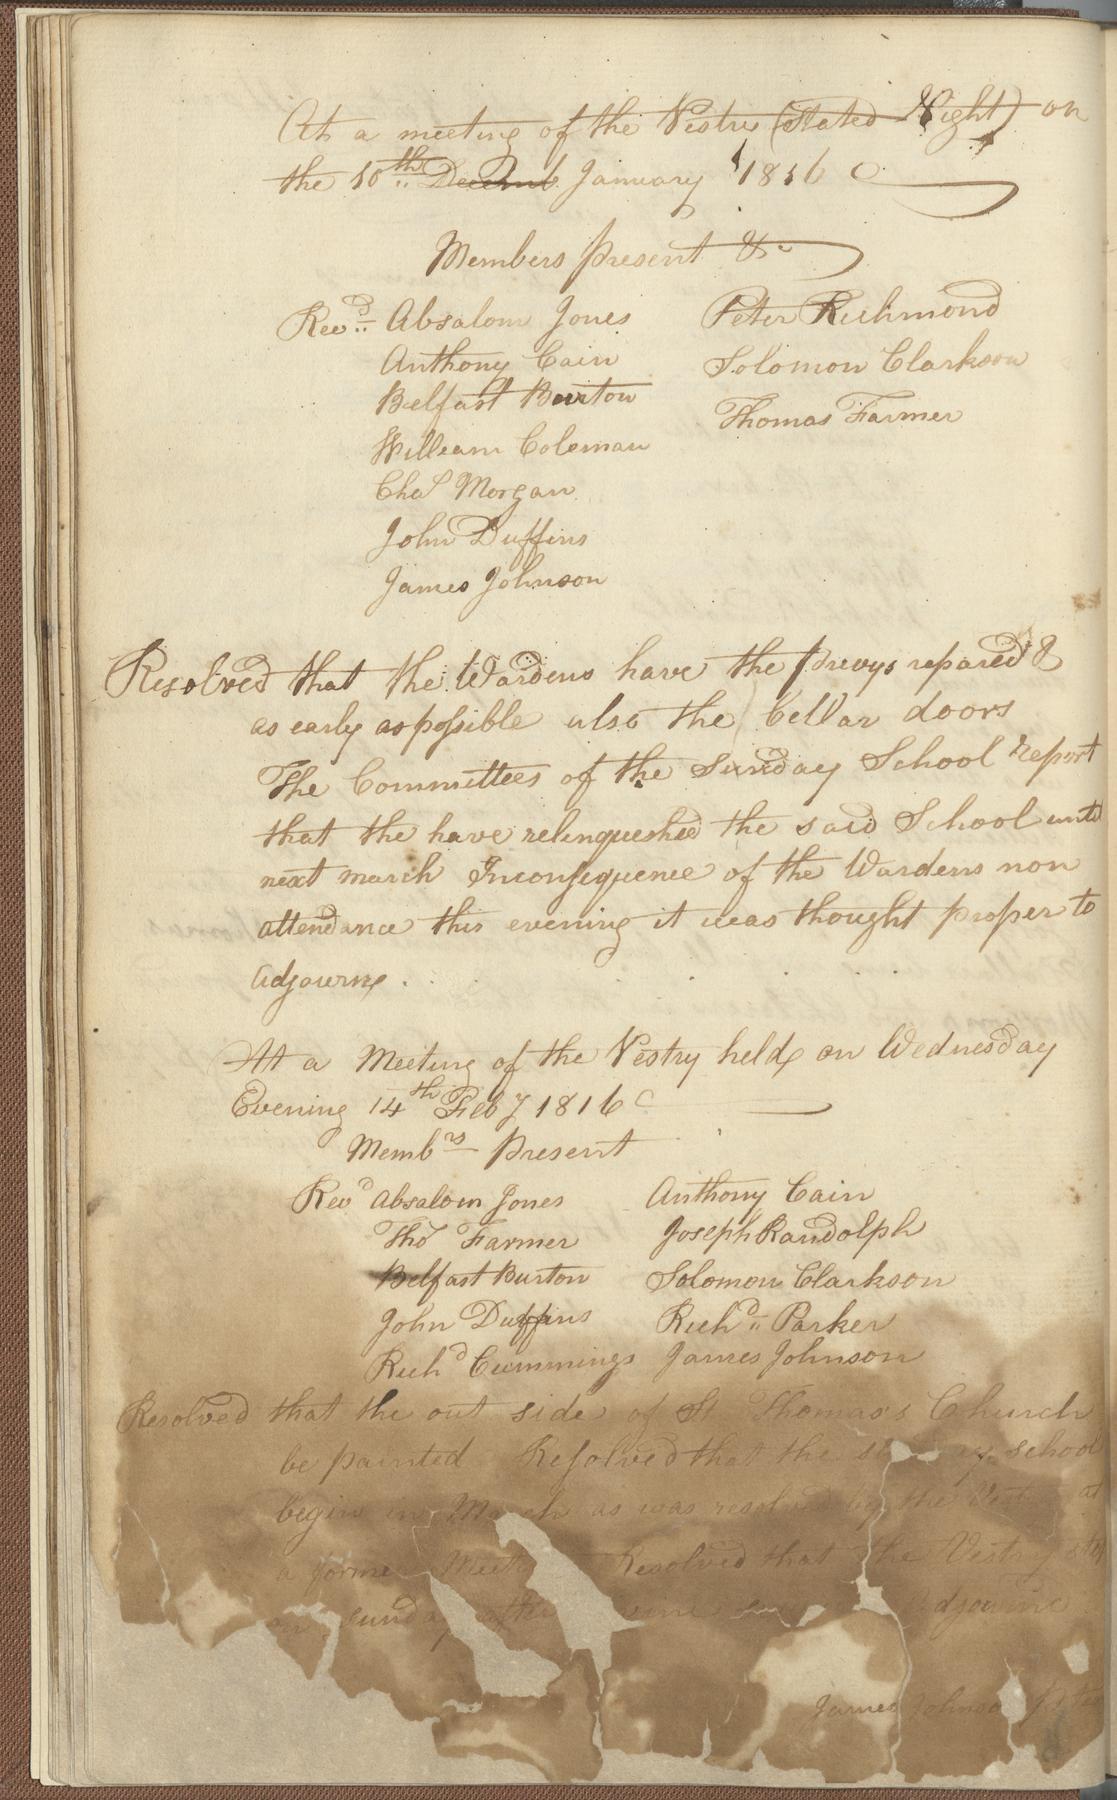 At a meeting of the Vestry (Stated Night) on
the 10th Decemb January 1816
Members Present &c
Revd Absalom Jones
Anthony Cain
Belfast Burton
William Coleman
Chas Morgan
John Duffins
James Johnson
Peter Richmond
Solomon Clarkson
Thomas Farmer
Resolved that the Wardens have the privys repared &
as early as possible also the Cellar doors
The Committees of the Sunday School report
that the have relinqueshed the said School until
next march Inconsequence of the Wardens non
attendance this evening it was thought proper to
Adjourne.
At a Meeting of the Vestry held on Wednesday
Evening 14th Feby 1816
Membrs present
Revd Absalom Jones
Thos Farmer
Belfast Burton
John Duffins
Richd Cummings
Anthony Cain
Joseph Randolph
Solomon Clarkson
Richd Parker
James Johnson
Resolved that the out side of St Thomas's Church
be painted Resolved that the school
begin in March as was resolved by the at
a former Resolved that the Vestry
on Sunday after Adjourne
James Johnson